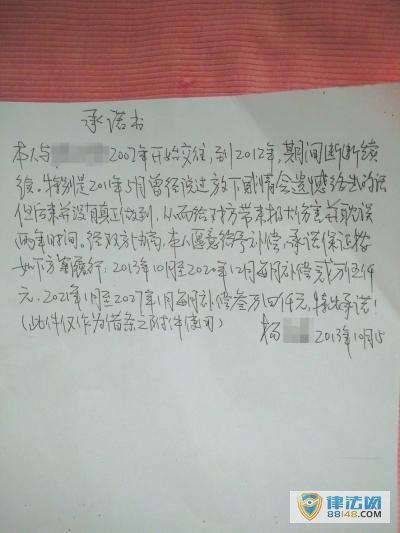 承诺书
本人与 2007年开始交往,到2012年,期间断断续
续。特别是2011年5月曾经说过放下感情会遗憾终生的话
但后来并没有真正做到,从而给对方带来极大伤害并耽误
两年时间。经双方协商,本人愿意给予补偿,承诺保证按
如下方案履行:2013年10月至2020年12月每月补偿贰万伍仟
元,2021年1月至2027年1月每月补偿叁万四仟元,特此承诺!
(此件仅作为借条之附件使用) 杨 2013年10月15
律法网
88148.COM